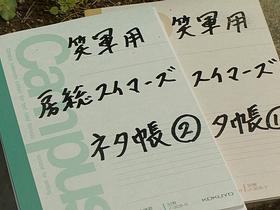 笑軍用
房総スイマーズ
ネタ帳②
Campus
KOKUYO
笑軍用
スイマーズ
タ帳①